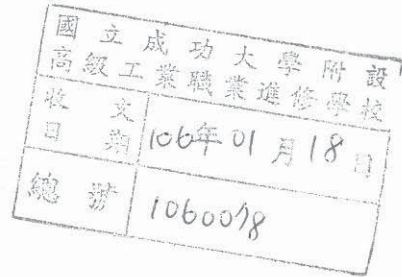 國立成功大學附設
高級工業職業進修學校
收文
日期 106年01月18日
總號 1060078